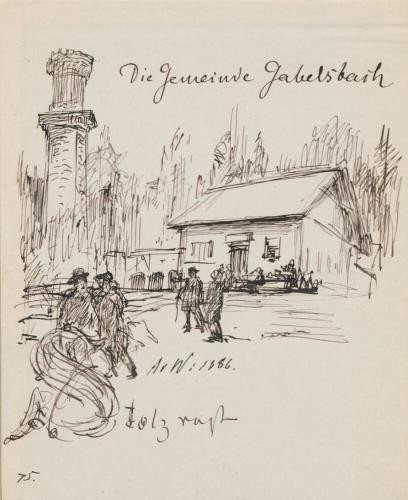 Die Gemeinde Gabelsbach
AvW: 1886.
Stolz rast
75.